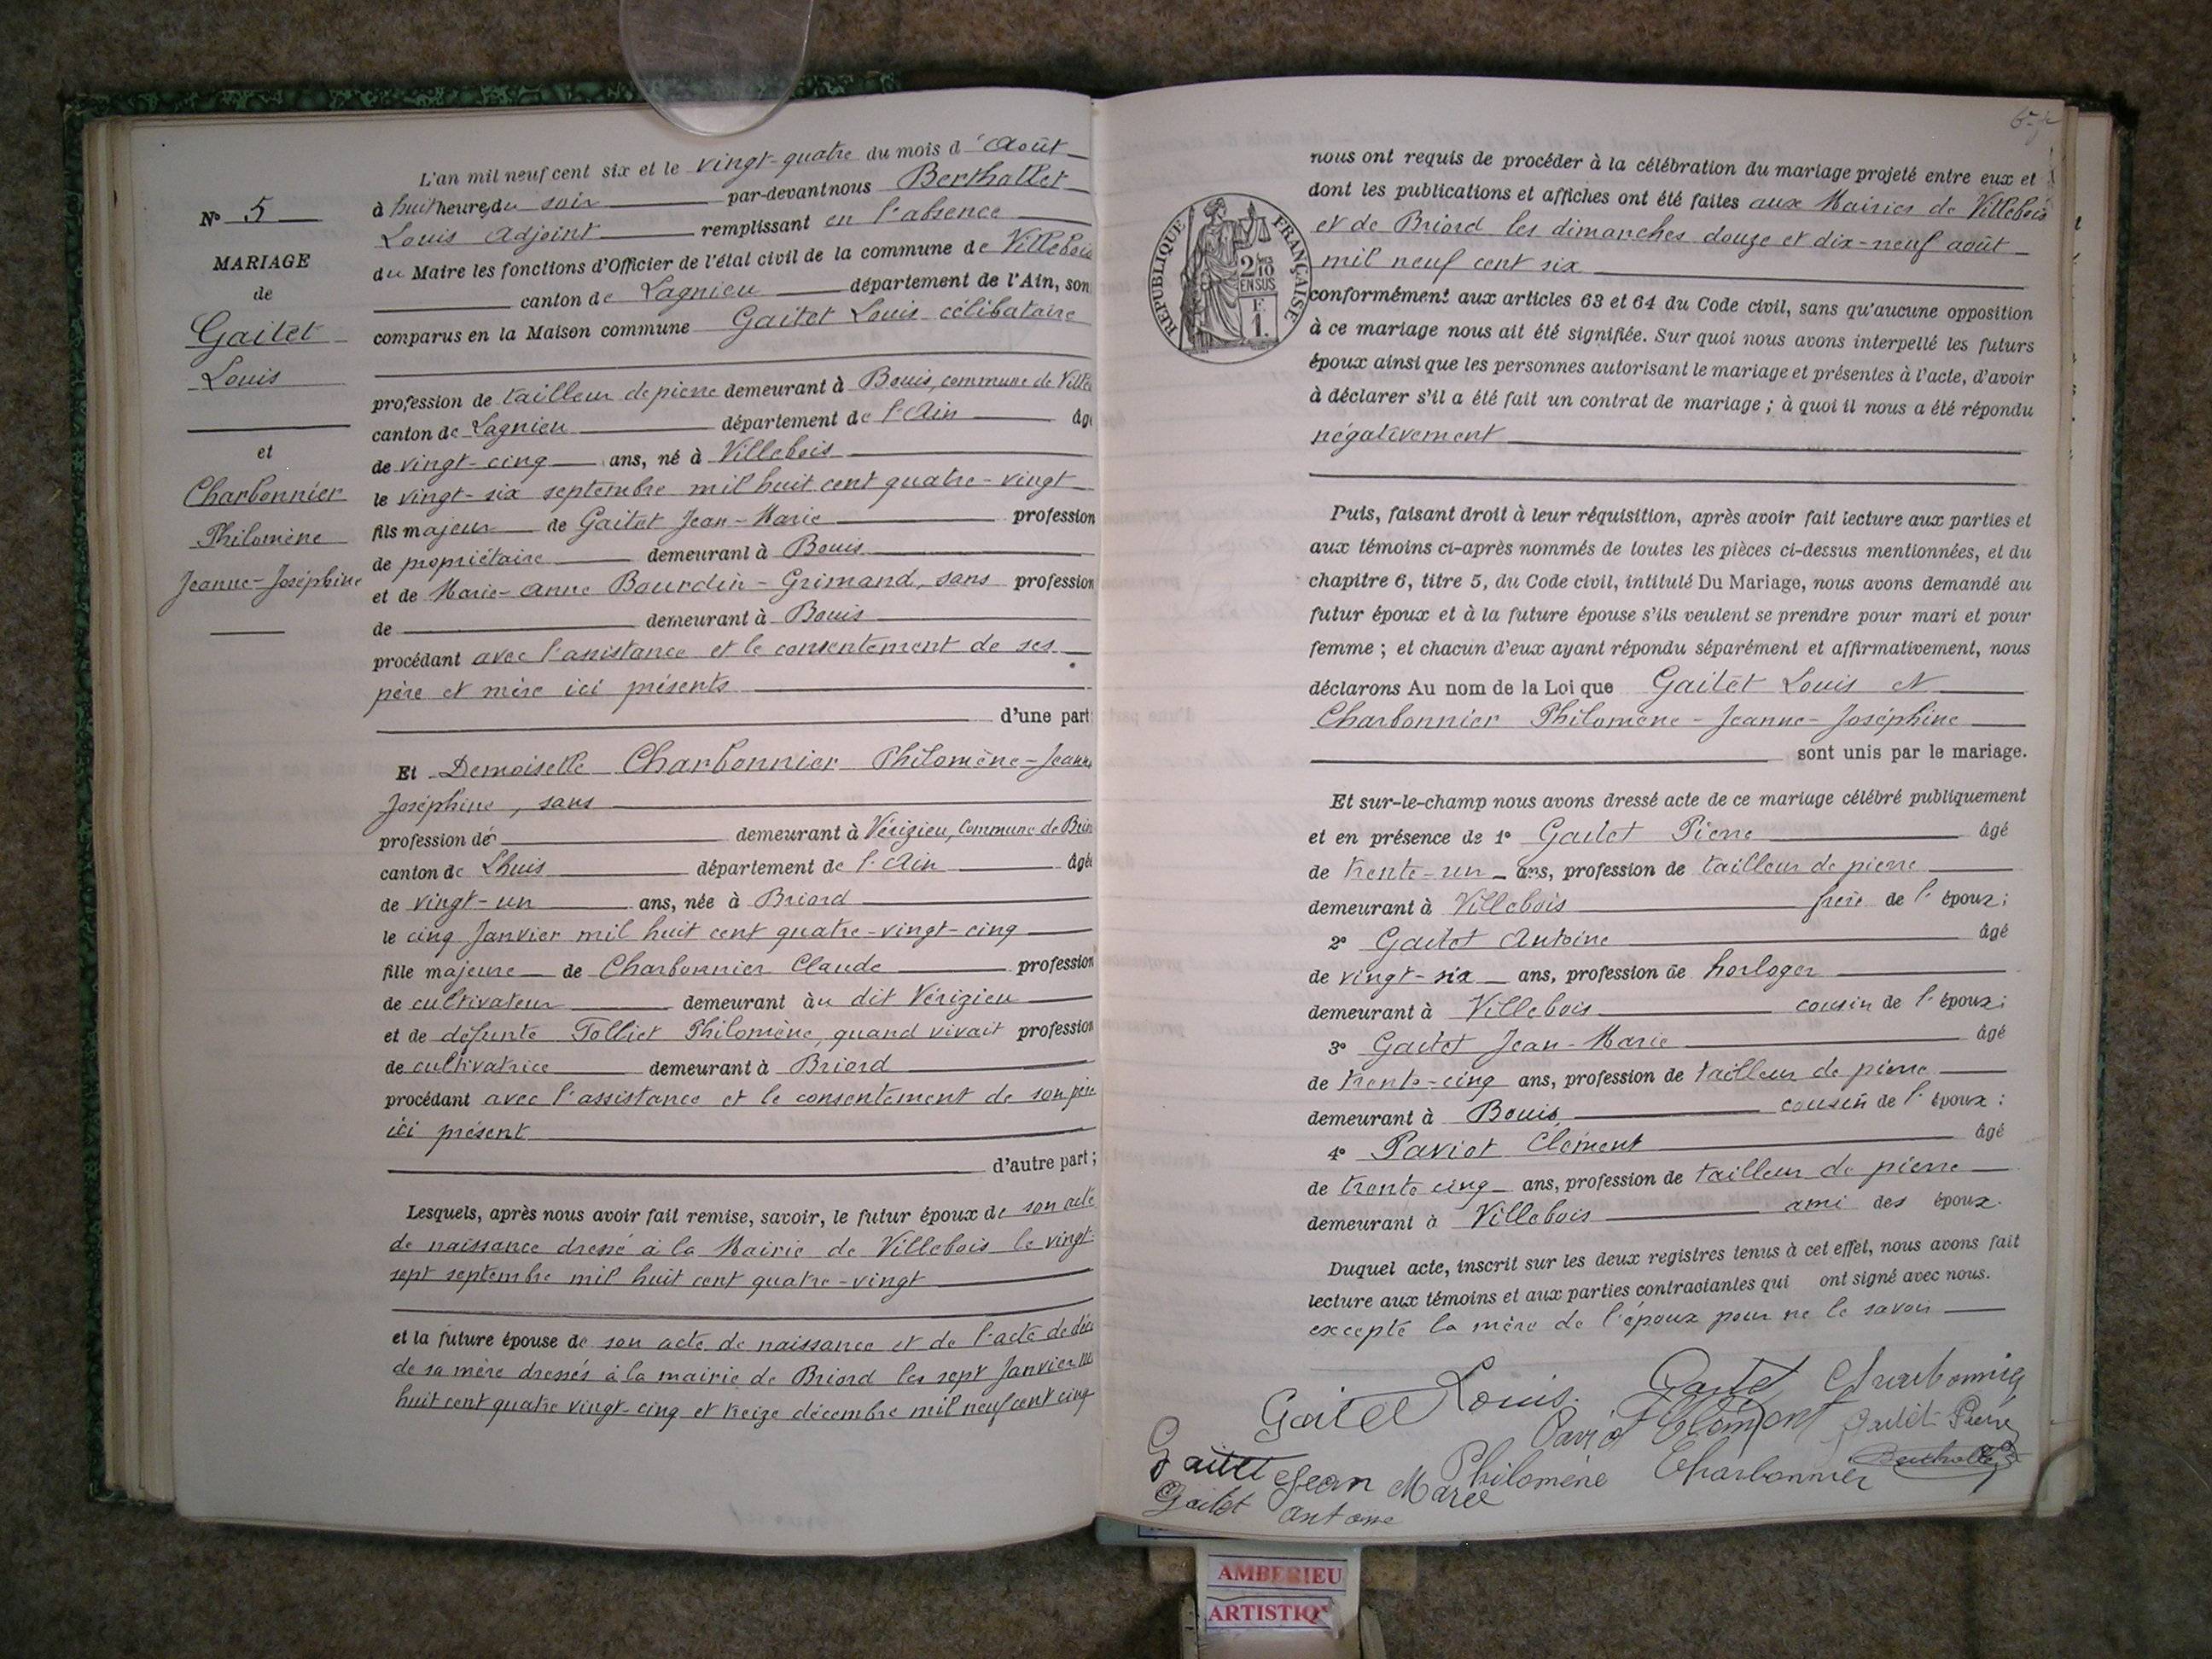 N° 5
MARIAGE
de
Gaitet
Louis
et
Charbonnier
Philomène
Jeanne-Joséphine
L'an mil neuf cent six et le vingt-quatre du mois d'Août
à huit heures du soir par-devant nous Berthollet
Louis Adjoint remplissant en l'absence
du Maire les fonctions d'Officier de l'état civil de la commune de Villebois
canton de Lagnieu département de l'Ain, son
comparus en la Maison commune Gaitet Louis célibataire
profession de tailleur de pierre demeurant à Bouis, commune de Ville
canton de Lagnieu département de l'Ain âgé
de vingt-cinq ans, né à Villebois
le vingt-six septembre mil huit cent quatre-vingt
fils majeur de Gaitet Jean-Marie profession
de propriétaire demeurant à Bouis
et de Marie-Anne Bourdin-Grimand, sans profession
de demeurant à Bouis
procédant avec l'assistance et le consentement de ses
père et mère ici présents
d'une part
Et Demoiselle Charbonnier Philomène-Jeanne
Joséphine, sans
profession de demeurant à Vérizieu, commune de Brior
canton de Lhuis département de l'Ain âgée
de vingt-un ans, née à Briord
le cinq Janvier mil huit cent quatre-vingt-cinq
fille majeure de Charbonnier Claude profession
de cultivateur demeurant au dit Vérizieu
et de défunte Tolliet Philomène, quand vivait profession
de cultivatrice demeurant à Briord
procédant avec l'assistance et le consentement de son père
ici présent
d'autre part ;
Lesquels, après nous avoir fait remise, savoir, le futur époux de son acte
de naissance dressé à la Mairie de Villebois le vingt-
sept septembre mil huit cent quatre-vingt
et la future épouse de son acte de naissance et de l'acte de décès
de sa mère dressés à la mairie de Briord les sept Janvier mil
huit cent quatre vingt-cinq et treize décembre mil neuf cent cinq
nous ont requis de procéder à la célébration du mariage projeté entre eux et
dont les publications et affiches ont été faites aux Mairies de Villebois
et de Briord les dimanches douze et dix-neuf août
mil neuf cent six
RÉPUBLIQUE FRANÇAISE
2/10
EN SUS
F.
1.
conformément aux articles 63 et 64 du Code civil, sans qu'aucune opposition
à ce mariage nous ait été signifiée. Sur quoi nous avons interpellé les futurs
époux ainsi que les personnes autorisant le mariage et présentes à l'acte, d'avoir
à déclarer s'il a été fait un contrat de mariage ; à quoi il nous a été répondu
négativement
Puis, faisant droit à leur réquisition, après avoir fait lecture aux parties et
aux témoins ci-après nommés de toutes les pièces ci-dessus mentionnées, et du
chapitre 6, titre 5, du Code civil, intitulé Du Mariage, nous avons demandé au
futur époux et à la future épouse s'ils veulent se prendre pour mari et pour
femme ; et chacun d'eux ayant répondu séparément et affirmativement, nous
déclarons Au nom de la Loi que Gaitet Louis et
Charbonnier Philomène-Jeanne-Joséphine
sont unis par le mariage.
Et sur-le-champ nous avons dressé acte de ce mariage célébré publiquement
et en présence de 1° Gaitet Pierre âgé
de trente-un ans, profession de tailleur de pierre
demeurant à Villebois frère de l'époux ;
2° Gaitet Antoine âgé
de vingt-six ans, profession de horloger
demeurant à Villebois cousin de l'époux ;
3° Gaitet Jean-Marie âgé
de trente-cinq ans, profession de tailleur de pierre
demeurant à Bouis cousin de l'époux ;
4° Paviot Clément âgé
de trente cinq ans, profession de tailleur de pierre
demeurant à Villebois ami des époux.
Duquel acte, inscrit sur les deux registres tenus à cet effet, nous avons fait
lecture aux témoins et aux parties contractantes qui ont signé avec nous.
excepté la mère de l'époux pour ne le savoir
Gaitet Louis. Gaitet Charbonnier
Paviot Clément Gaitet Pierre
Gaitet Jean Marie Philomène Charbonnier Berthollet
Gaitet Antoine
AMBERIEU
ARTISTIQ